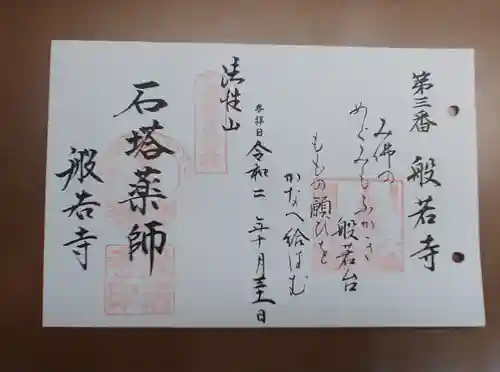 第三番 般若寺
み佛の
めぐみもふかき
般若台
ももの願ひを
かなへ給はむ
参拝日 令和二年十月十一日
法性山
石塔薬師
般若寺